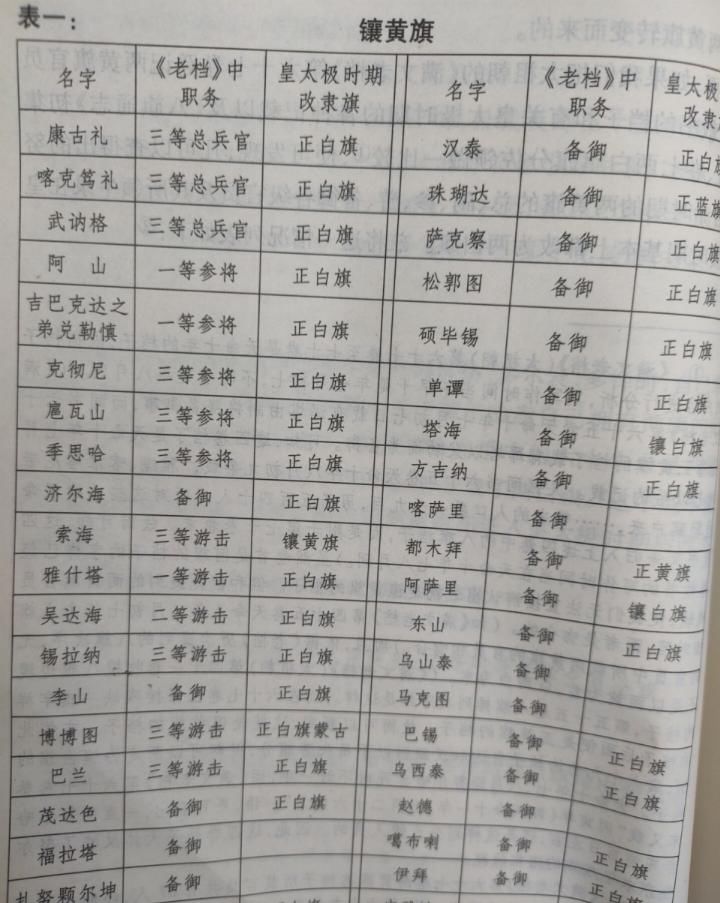 表一：
镶黄旗
名字 《老档》中职务 皇太极时期改隶旗 名字 《老档》中职务 皇太极 改隶
康古礼 三等总兵官 正白旗 汉泰 备御 正白旗
喀克笃礼 三等总兵官 正白旗 珠瑚达 备御 正蓝旗
武讷格 三等总兵官 正白旗 萨克察 备御 正白旗
阿山 一等参将 正白旗 松郭图 备御 正白旗
吉巴克达之弟兑勒慎 一等参将 正白旗 硕毕锡 备御 正白旗
克彻尼 三等参将 正白旗 单谭 备御 正白旗
扈瓦山 三等参将 正白旗 塔海 备御 镶白旗
季思哈 三等参将 正白旗 方吉纳 备御 正白旗
济尔海 备御 正白旗 喀萨里 备御
索海 三等游击 镶黄旗 都木拜 备御 正黄旗
雅什塔 一等游击 正白旗 阿萨里 备御 镶白旗
吴达海 二等游击 正白旗 东山 备御 正白旗
锡拉纳 三等游击 正白旗 乌山泰 备御
李山 备御 正白旗 马克图 备御
博博图 三等游击 正白旗蒙古 巴锡 备御 正白旗
巴兰 三等游击 正白旗 乌西泰 备御 正白旗
茂达色 备御 正白旗 赵德 备御
福拉塔 备御 噶布喇 备御 正白旗
扎努颗尔坤 备御 伊拜 备御 正白旗